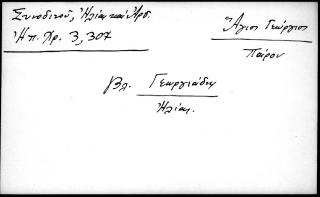 Συνοδινοῦ, Ἠλίας καὶ Ἀρ.
Ἠπ. Χρ. 3, 307
Ἅγιος Γεώργιος
Πάρου
Βλ. Γεωργιάδην
Ἠλίαν.